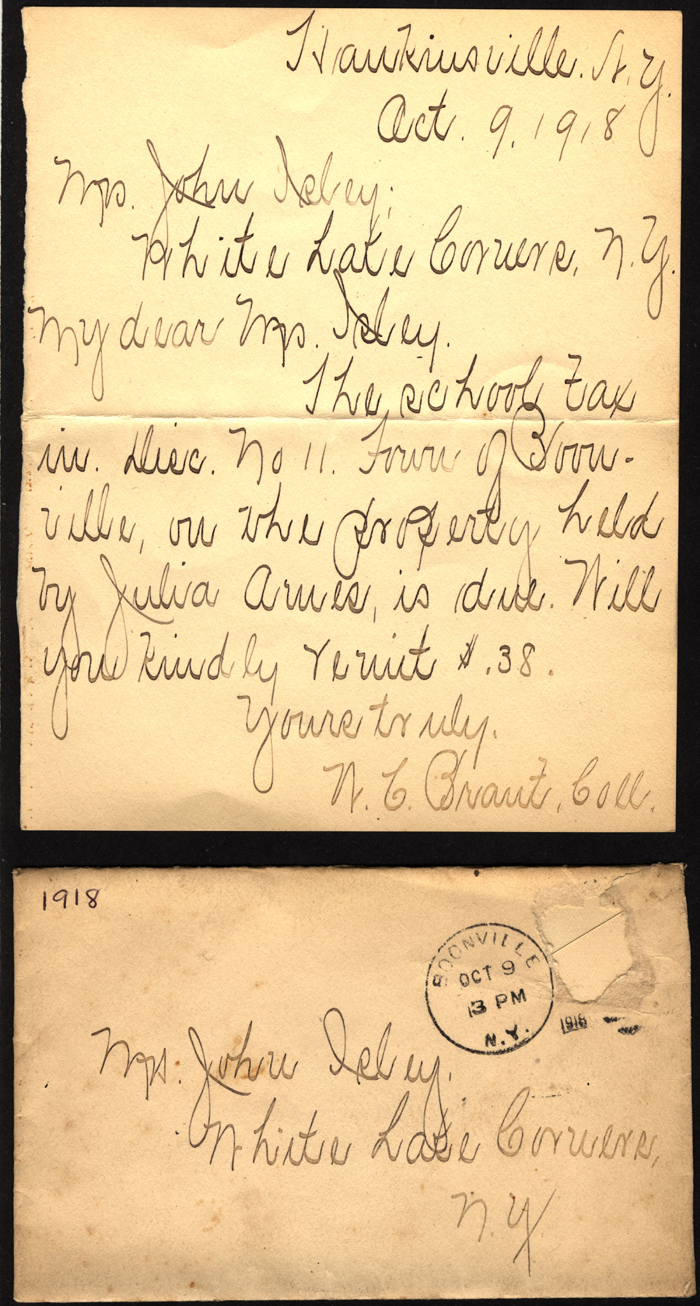 Hawkinsville. N.Y.
Oct. 9, 1918
Mrs. John Isley;
White Lake Corners, N.Y.
My dear Mrs. Isley.
The school tax
in. Disc. No 11. Town of Boon-
ville, on the property held
by Julia Ames, is due. Will
you kindly remit $.38.
Yours truly.
N. C. Brant, Coll.
1918
BOONVILLE
OCT 9
3 PM
N.Y.
1918
Mrs. John Isley.
White Lake Corners,
N.Y.